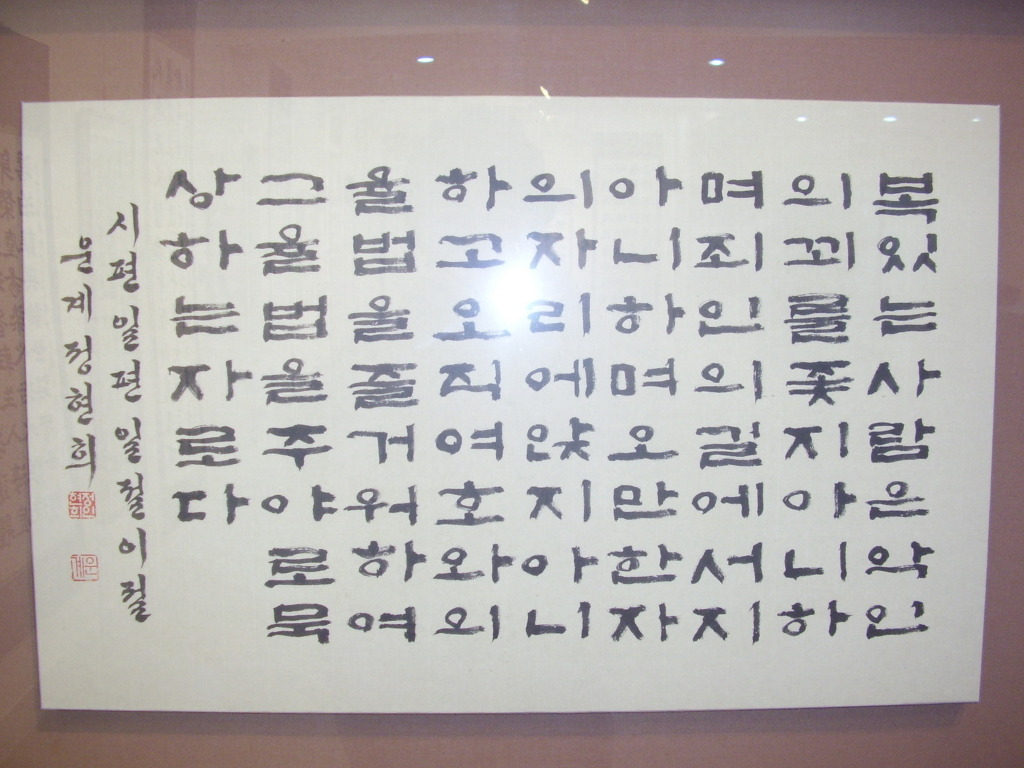 복있는사람은악인
의꾀를좇지아니하
며죄인의길에서지
아니하며오만한자
의자리에앉지아니
하고오직여호와의
율법을즐거워하여
그율법을주야로묵
상하는자로다
시편일편일절이절
운계정현희